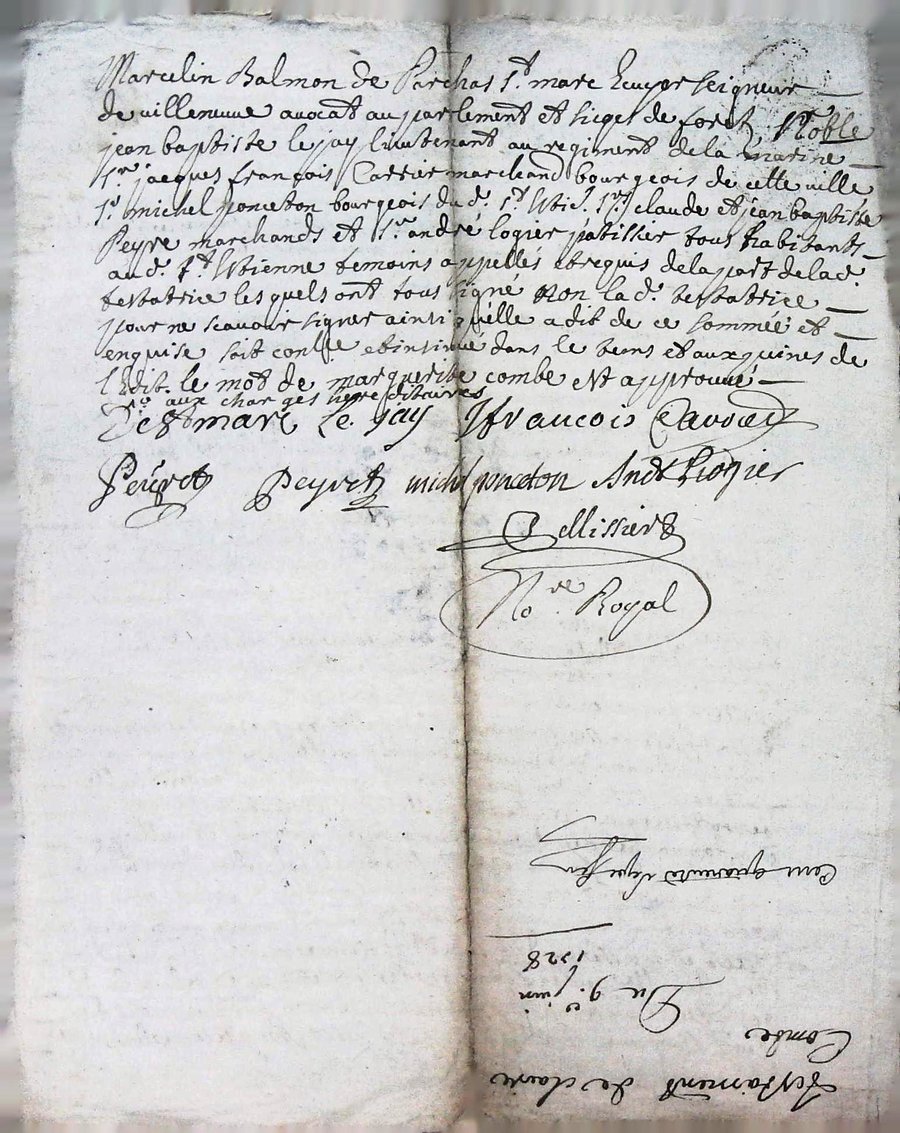 Marcelin Balmon de Parchas St. marc Ecuyer seigneur
de villeneuve avocat au parlement et sieges de forets, Noble
jean baptiste le jay lieutenant au regiment de la marine
Sr. jacques françois Carrier marchand bourgeois de cette ville
Sr. michel ponceton bourgeois du d. St. Etie. Srs. claude et jean baptiste
Peyre marchands et Sr. andré logier patissier tous habitants
au d. St. Etienne temoins appellés et requis de la part de la d.
testatrice lesquels ont tous signe non la d. testatrice
pour ne scavoir signer ainsi quelle a dit de ce sommée et
enquise soit conlle et insinué dans le tems et aux peines de
l'Edit. le mot de marguerite combe est approuvé
aux charges hereditaires
De St marc Le jay françois
Peyret Peyret michel ponceton André logier
Tellissier
No.re Royal
Testament de claire
Combe
Du 9e. juin
1728
Cent quarante